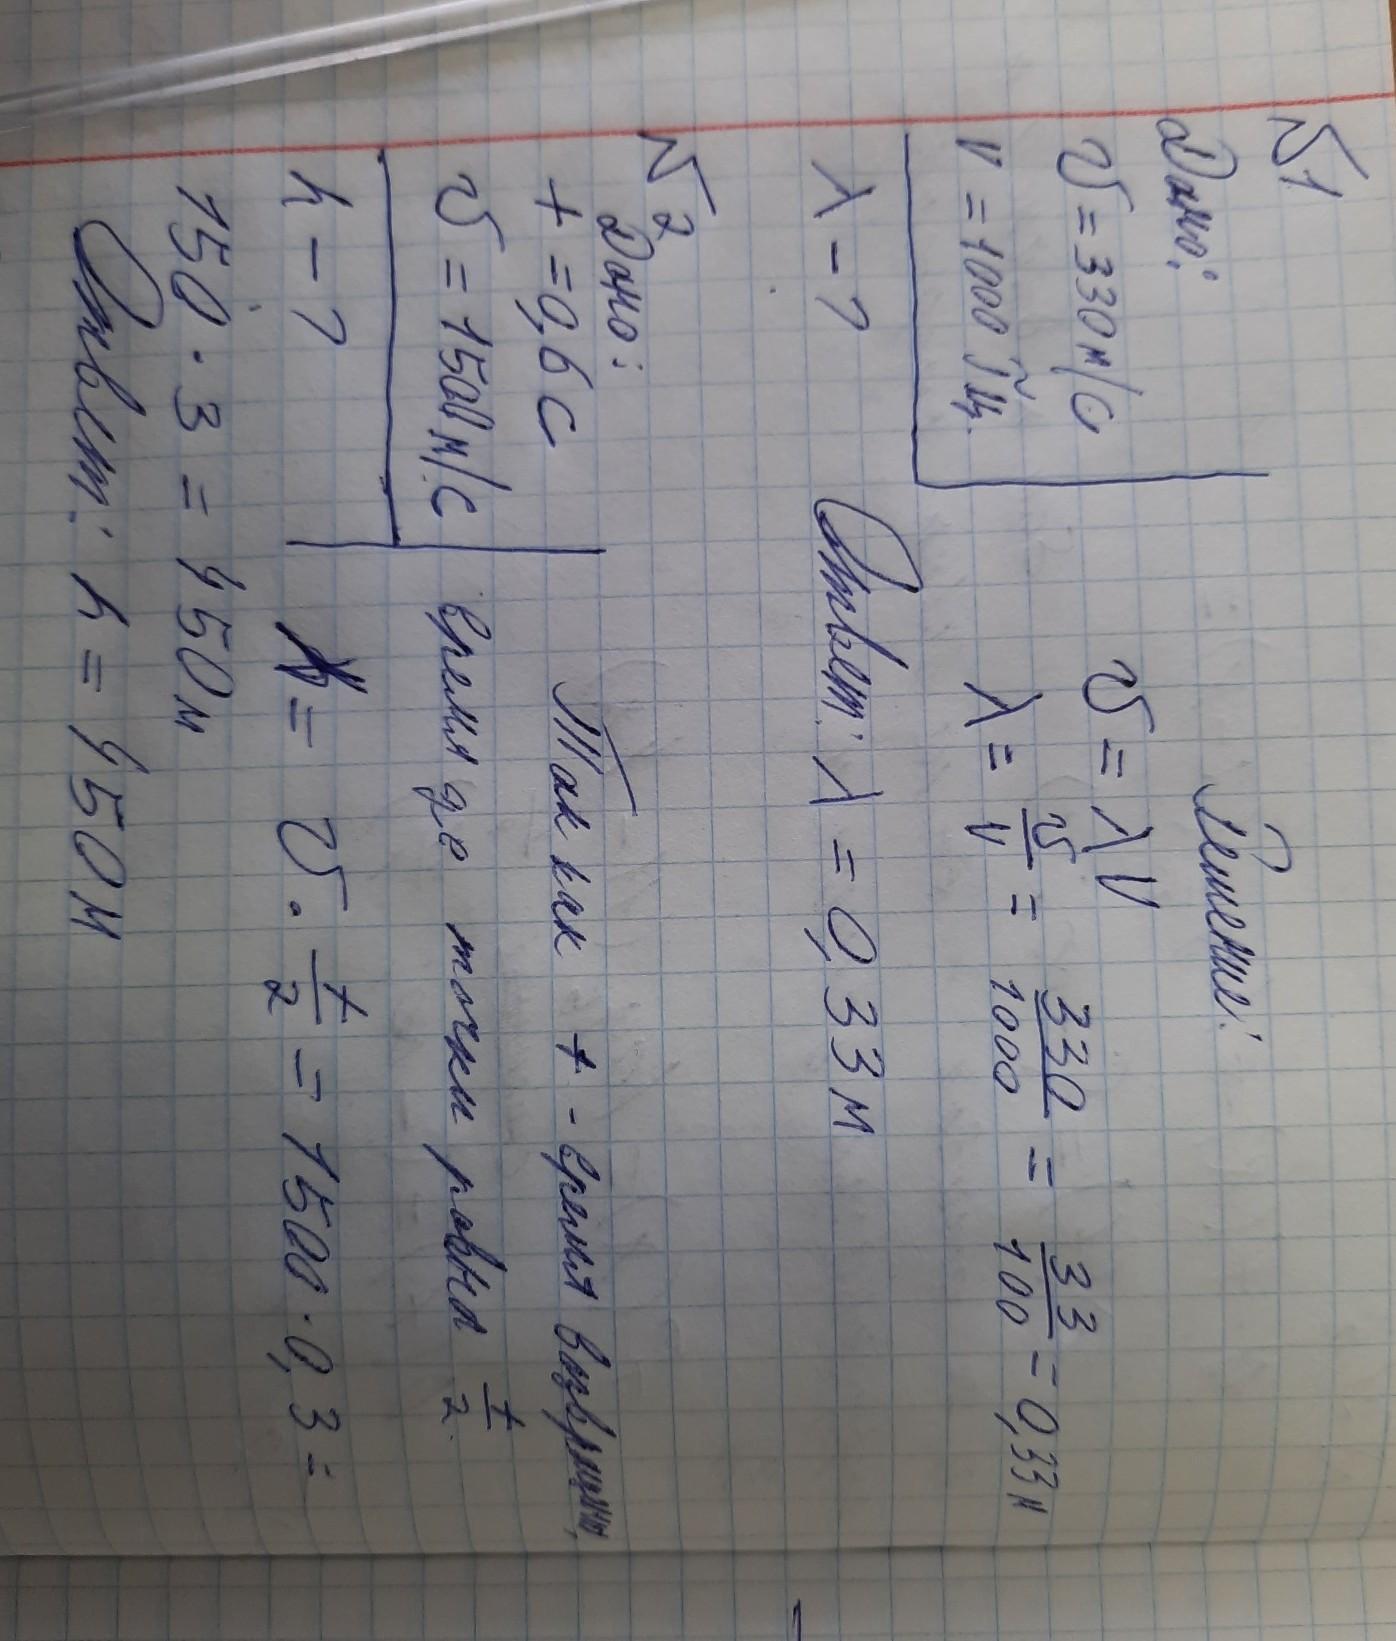 №1
Дано:
υ = 330 м/с
ν = 1000 Гц.
λ - ?
Решение:
υ = λν
λ = υ/ν = 330/1000 = 33/100 = 0,33 м
Ответ: λ = 0,33 м
№2
Дано:
t = 0,6 с
υ = 1500 м/с
h - ?
Так как t - время
время до точки равна t/2.
h = υ · t/2 = 1500 · 0,3 =
150 · 3 = 450 м
Ответ: h = 450 м